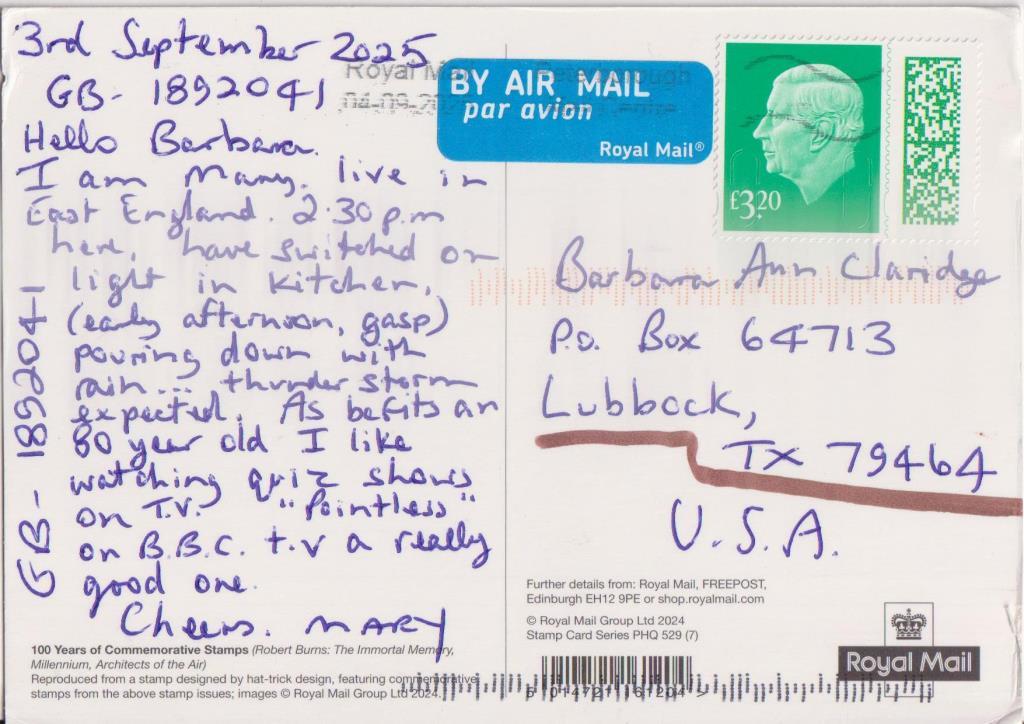 3rd September 2025
GB- 1892041
Hello Barbara.
I am Mary, live in
East England. 2.30 p.m
here, have switched on
light in kitchen,
(early afternoon, gasp)
pouring down with
rain... thunder storm
expected. As befits an
80 year old I like
watching quiz shows
on T.V. "Pointless"
on B.B.C. t.v a really
good one.
Cheers. MARY
GB- 1892041
100 Years of Commemorative Stamps (Robert Burns: The Immortal Memory,
Millennium, Architects of the Air)
Reproduced from a stamp designed by hat-trick design, featuring commemorative
stamps from the above stamp issues; images © Royal Mail Group Ltd 2024.
Royal Mail
Peterborough
04-09-202
Centre
BY AIR MAIL
par avion
Royal Mail®
£3.20
Barbara Ann Claridge
P.O. Box 64713
Lubbock,
TX 79464
U.S.A.
Further details from: Royal Mail, FREEPOST,
Edinburgh EH12 9PE or shop.royalmail.com
© Royal Mail Group Ltd 2024
Stamp Card Series PHQ 529 (7)
Royal Mail
5 014721 161204 >